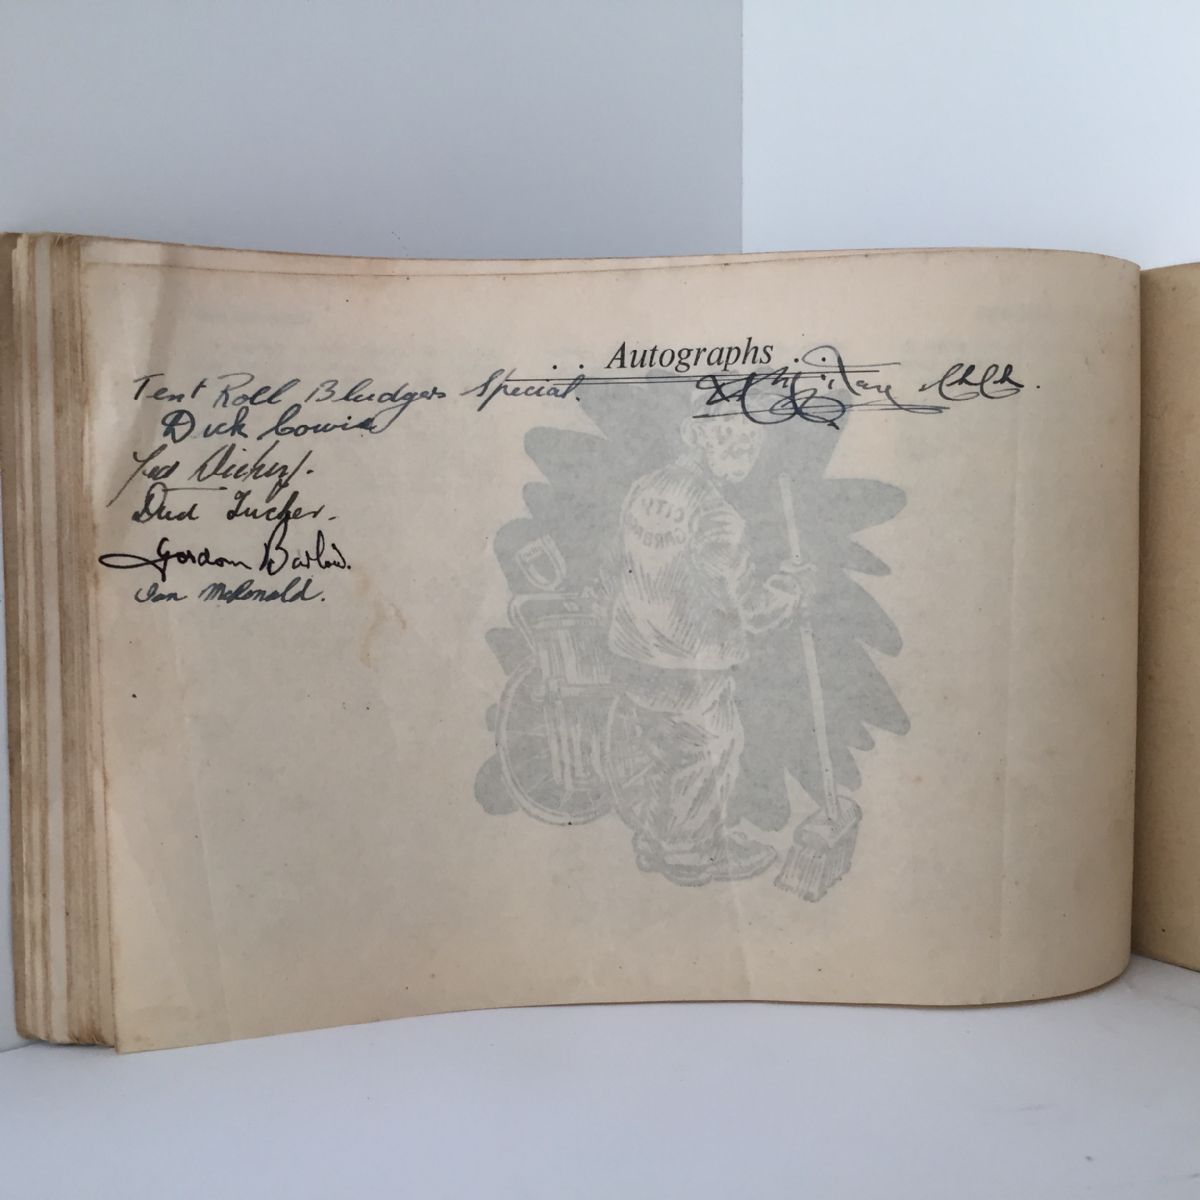 . . Autographs . .
Tent Roll Bludgers Special.
Dick Cowie
Ted Dickey.
Dud Tucker.
Gordon Barlow.
Ian McDonald.
CITY
GARBA